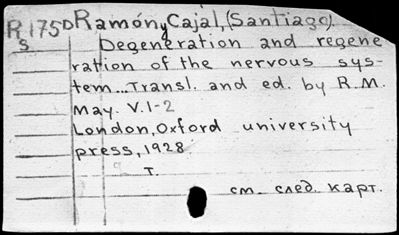 R 1750 Ramón y Cajal, (Santiago)
s Degeneration and regene
ration of the nervous sys-
tem... Transl. and ed. by R.M.
May. V.1-2
London, Oxford university
press, 1928.
т.
см. след. карт.